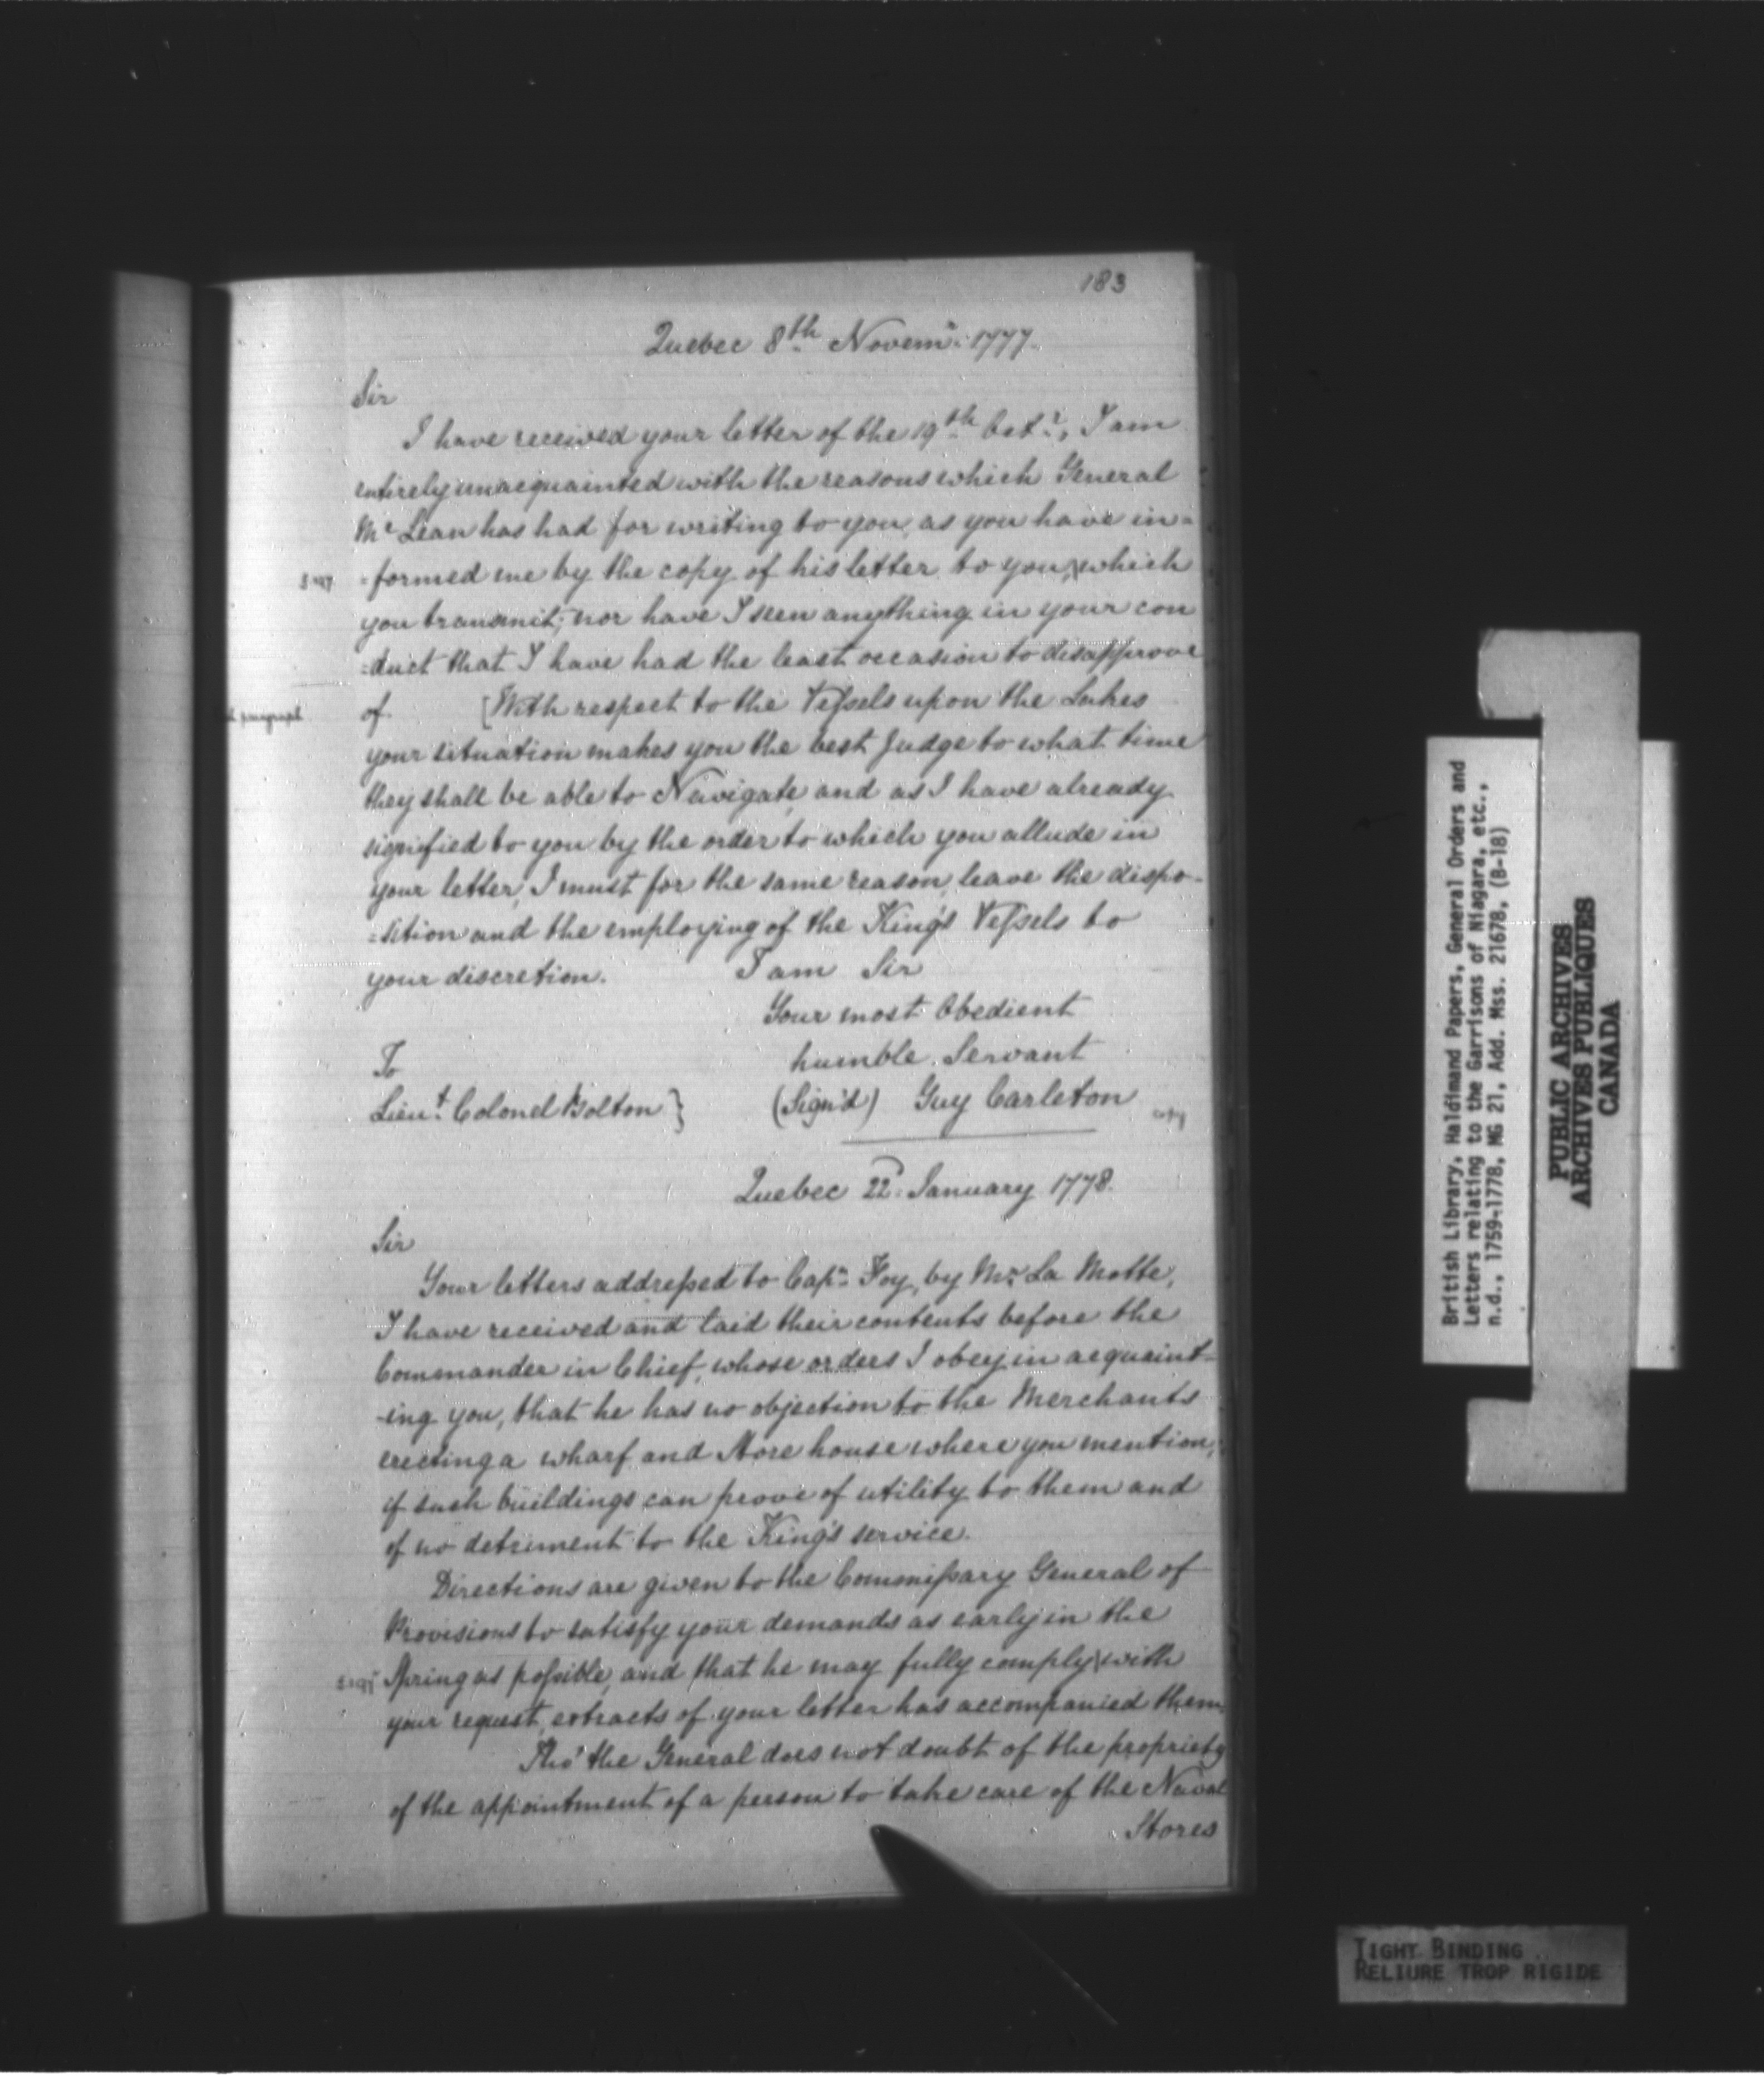 183
Quebec 8th Novemr: 1777.
Sir
I have received your letter of the 19th Octr., I am
entirely unacquainted with the reasons which General
Mc Lean has had for writing to you, as you have in=
=formed me by the copy of his letter to you, which
you transmit; nor have I seen anything in your con
=duct that I have had the least occasion to disapprove
paragraph
of. [With respect to the Vessels upon the Lakes
your situation makes you the best Judge to what time
they shall be able to Navigate, and as I have already
signified to you by the order to which you allude in
your letter, I must for the same reason, leave the dispo-
=sition and the employing of the King's Vessels to
your discretion. I am Sir
Your most Obedient
humble Servant
To
Lieut. Colonel Bolton } (Sign'd) Guy Carleton
copy
Quebec 22d January 1778.
Sir
Your letters addressed to Capn. Foy, by Mr. La Motte,
I have received and laid their contents before the
Commander in Chief, whose orders I obey in acquaint-
-ing you, that he has no objection to the Merchants
erecting a wharf and Store house where you mention,
if such buildings can prove of utility to them and
of no detriment to the King's service.
Directions are given to the Commissary General of
Provisions to satisfy your demands as early in the
Spring as possible, and that he may fully comply with
your request, extracts of your letter has accompanied them.
Tho' the General does not doubt of the propriety
of the appointment of a person to take care of the Naval
Stores
British Library, Haldimand Papers, General Orders and
Letters relating to the Garrisons of Niagara, etc.,
n.d., 1759-1778, MG 21, Add. Mss. 21678, (B-18)
PUBLIC ARCHIVES
ARCHIVES PUBLIQUES
CANADA
TIGHT BINDING
RELIURE TROP RIGIDE